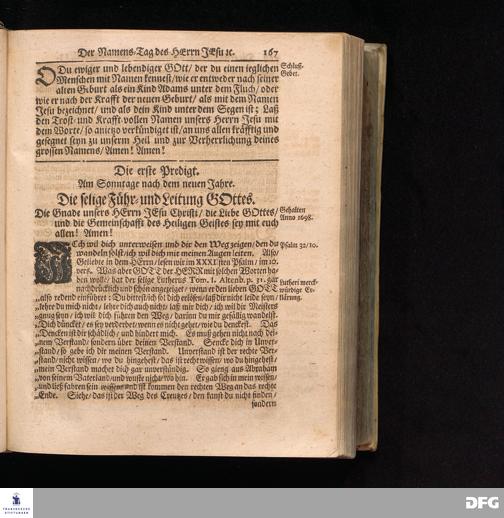 Der Namens-Tag des HErrn JEsu ꝛc. 167
O Du ewiger und lebendiger GOtt/ der du einen ieglichen
Menschen mit Namen kennest/ wie er entweder nach seiner
alten Geburt als ein Kind Adams unter dem Fluch/ oder
wie er nach der Krafft der neuen Geburt/ als mit dem Namen
Jesu bezeichnet/ und als dein Kind unter dem Segen ist; Laß
den Trost- und Krafft-vollen Namen unsers Herrn Jesu mit
dem Worte/ so anietzo verkündiget ist/ an uns allen kräfftig und
gesegnet seyn zu unserm Heil und zur Verherrlichung deines
grossen Namens/ Amen! Amen!
Schluß-
Gebet.
Die erste Predigt.
Am Sonntage nach dem neuen Jahre.
Die selige Führ- und Leitung GOttes.
Die Gnade unsers HErrn JEsu Christi/ die Liebe GOttes/
und die Gemeinschafft des Heiligen Geistes sey mit euch
allen! Amen!
Gehalten
Anno 1698.
ICh wil dich unterweisen und dir den Weg zeigen/ den du
wandeln solst/ ich wil dich mit meinen Augen leiten. Also/
Geliebte in dem HErrn/ lesen wir im XXXIIsten Psalm/ im 10.
vers. Was aber GOTT der HERR mit solchen Worten ha-
ben wolle/ hat der selige Lutherus Tom. I. Altenb. p. 31. gar
nachdrücklich und schön angezeiget/ wenn er den lieben GOTT
„also redend einführet: Du bittest/ ich sol dich erlösen/ laß dir nicht leide seyn/
„lehre du mich nicht/ lehre dich auch nicht/ laß mir dich/ ich wil dir Meisters
„gnug seyn/ ich wil dich führen den Weg/ darian du mir gefällig wandelst.
„Dich düncket/ es sey verderbet/ wenn es nicht gehet/ wie du denckest. Das
„Dencken ist dir schädlich/ und hindert mich. Es muß gehen nicht nach dei-
„nem Verstand/ sondern über deinen Verstand. Sencke dich in Unver-
„stand/ so gebe ich dir meinen Verstand. Unverstand ist der rechte Ver-
„stand/ nicht wissen/ wo du hingehest/ das ist recht wissen/ wo du hingehest/
„mein Verstand machet dich gar unverständig. So gieng aus Abraham
„von seinem Vaterland/ und wuste nicht/ wo hin. Er gab sich in mein wissen/
„und ließ fahren sein wissen/ und ist kommen den rechten Weg an das rechte
„Ende. Siehe/ das ist der Weg des Creutzes/ den kanst du nicht finden/
sondern
Psalm 32/10.
Lutheri merck-
würdige Er-
klärung.
FRANCKESCHE
STIFTUNGEN
DFG